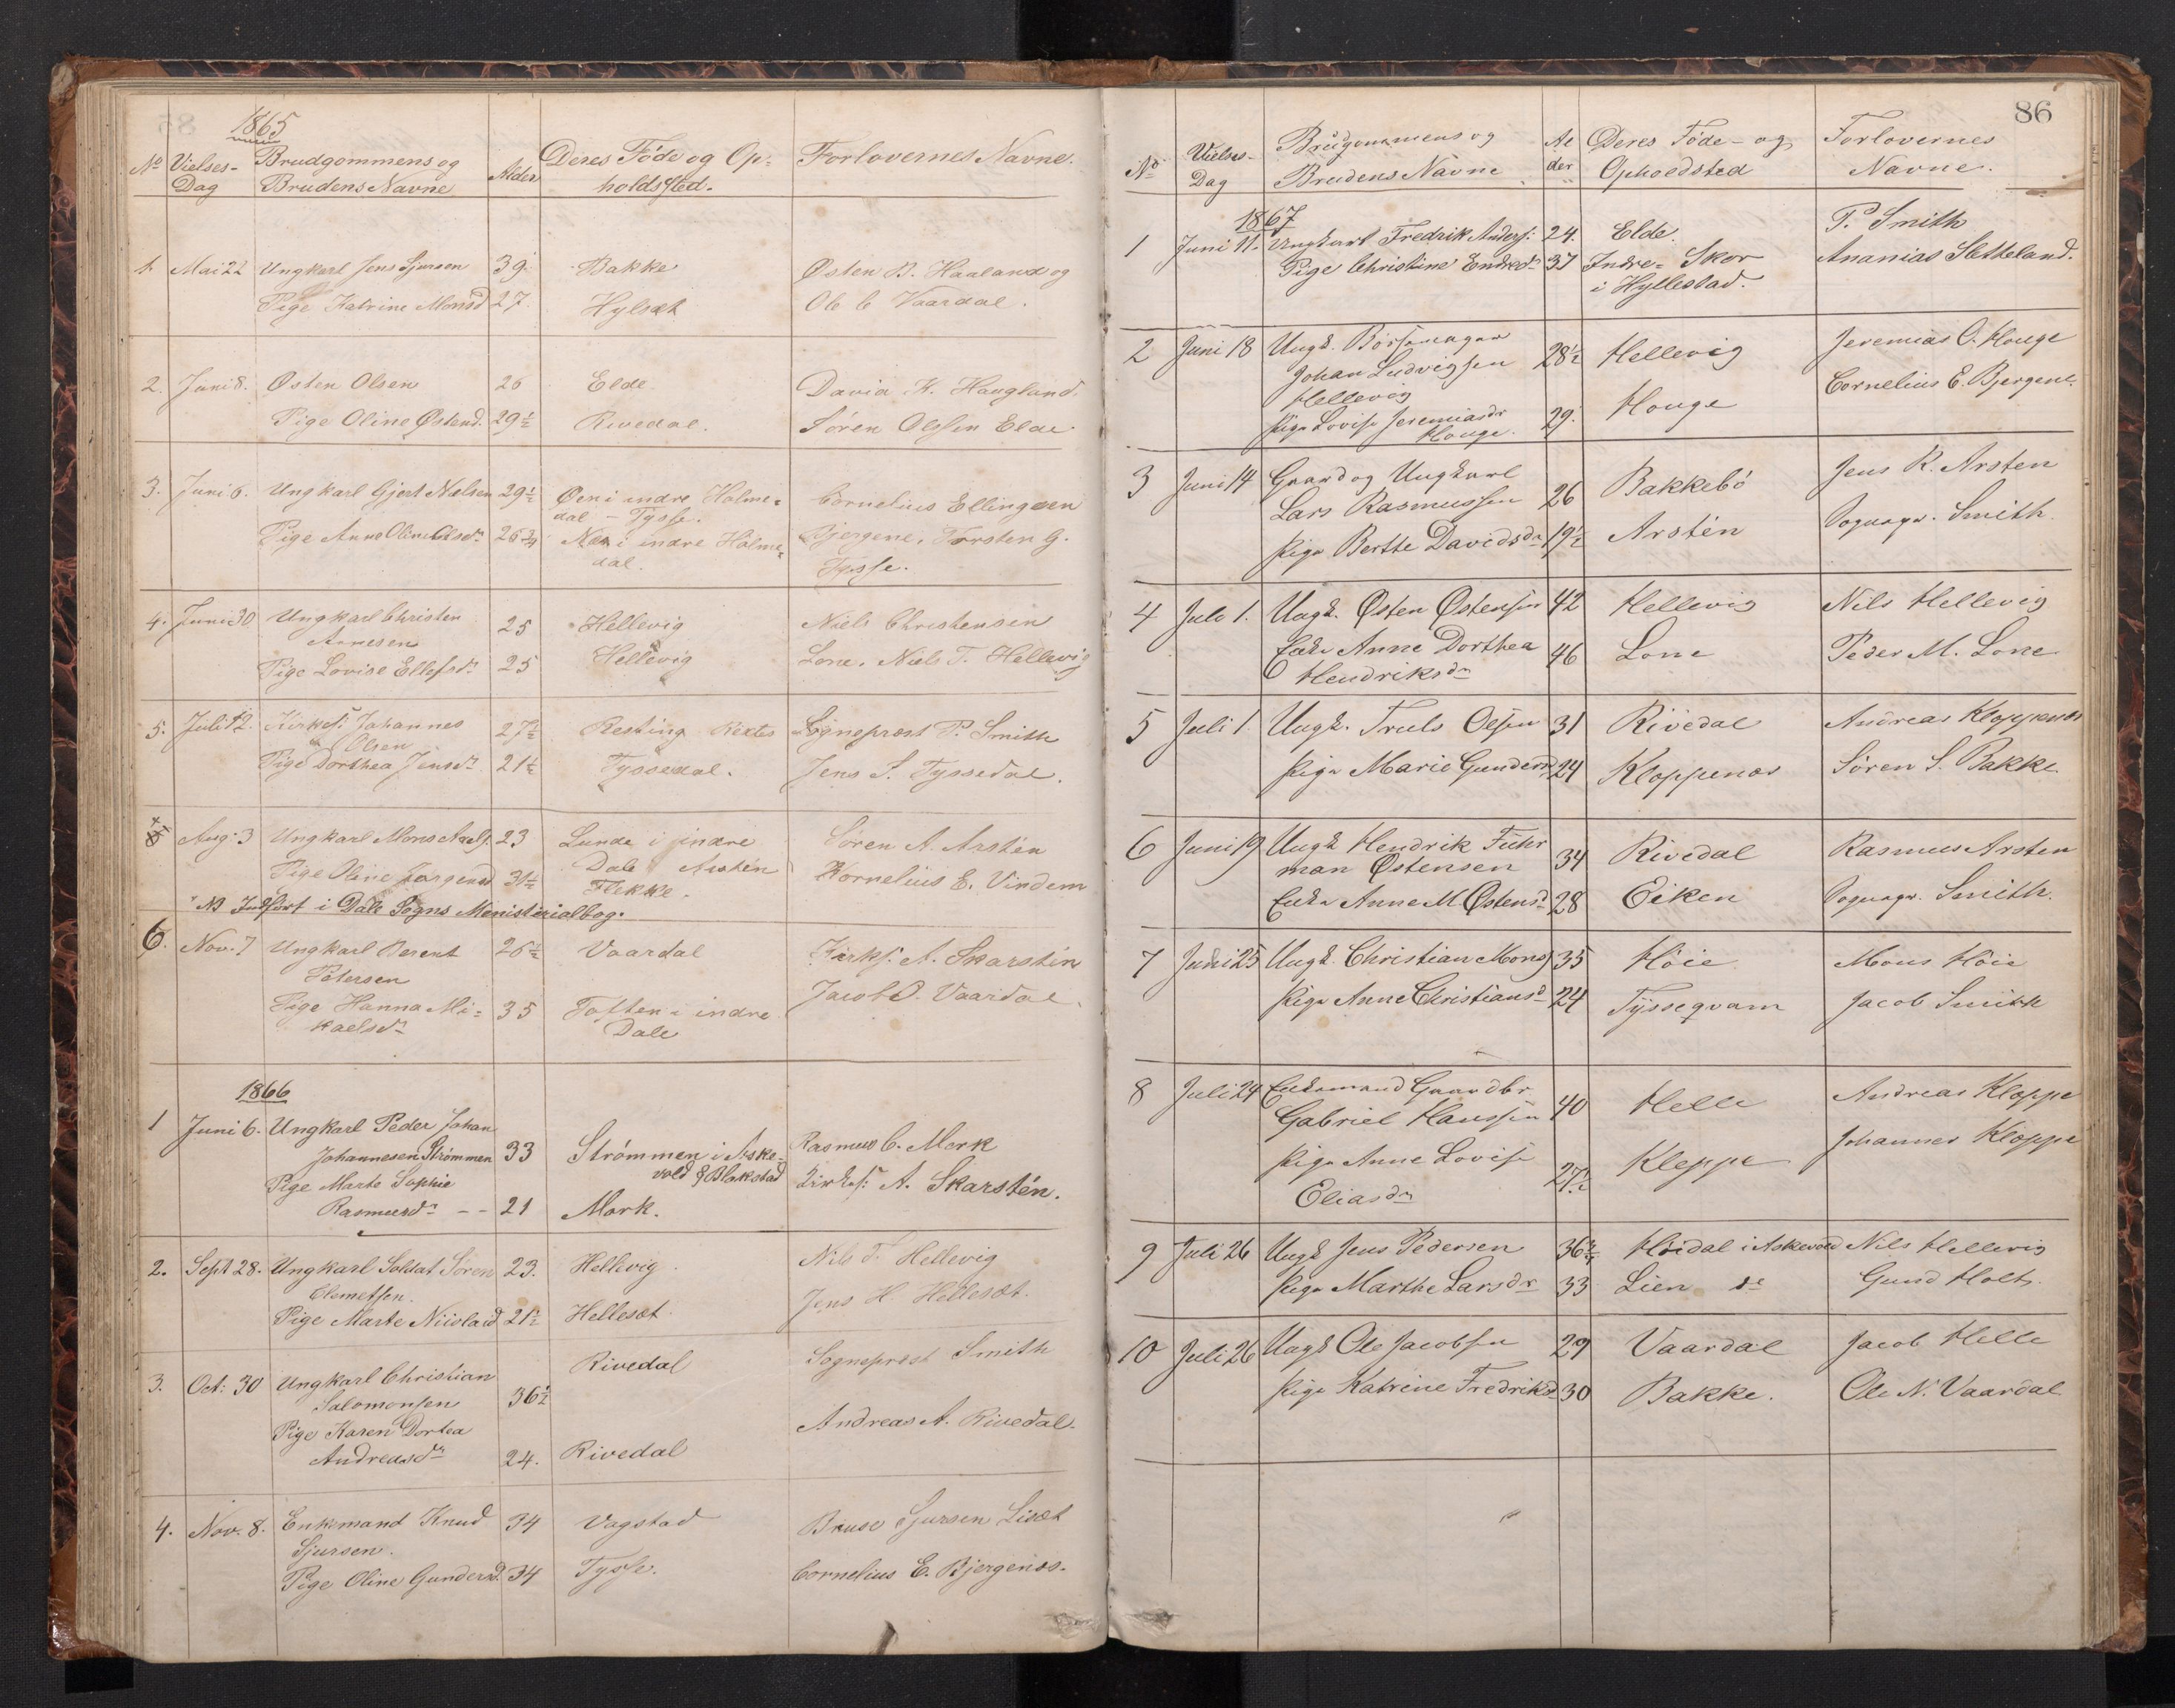 1865
No Vielses-Dag Brudgommens og Brudens Navne Alder Deres Føde og Opholdssted. Forlovernes Navne.
1. Mai 22 Ungkarl Jens Sjursen 39. Bakke Østen B. Haaland og
Pige Katrine Monsd 27. Hylsæt Ole C Vaardal.
2. Juni 8. Østen Olsen 26 Elde David K. Haugland.
Pige Oline Østensd. 29½ Rivedal. Søren Olsen Elde
3. Juni 6. Ungkarl Gjert Nielsen 29½ Øen i indre Holme=
dal - Tysse. Cornelius Ellingsen
Pige Anne Oline Olsdr 26¾ Næs i indre Holme=
dal. Bjergene, Torsten G.
Tysse.
4. Juni 30 Ungkarl Christen
Arnesen 25 Hellevig Niels Christensen
Pige Lovise Ellefsdr 25 Hellevig Lone. Niels T. Hellevig
5. Juli 12. Kirkes: Johannes
Olsen 27½ Resting Sogneprest P. Smith
Pige Dorthea Jensdr 21½ Tyssedal. Jens S. Tyssedal.
Aug: 3 Ungkarl Mons 23 Lunde i indre
Dale Arstén Søren A. Arstén
Pige Oline Jørgensd 31½ Flekke. Kornelius E. Vindem
NB Indført i Dale Sogns Ministerialbog.
6. Nov. 7 Ungkarl Berent
Petersen 26½ Vaardal Kirks. A. Skarstén
Pige Hanna Mi=
kaelsdr 35 Toften i indre
Dale Jacob O. Vaardal.
1866
1 Juni 6. Ungkarl Peder Johan
Johannesen Strømmen 33 Strømmen i Aske-
vold & Blakstad Rasmus C. Mork
Pige Marte Sophie
Rasmusdr -- 21 Mork. Kirkes: A. Skarstén.
2. Sept 28. Ungkarl Soldat Søren
Clemetsen. 23. Hellevig. Nils T. Hellevig
Pige Marte Nicolaid 21½ Hellesæt. Jens H Hellesæt.
3. Oct: 30 Ungkarl Christian
Salomonsen 36½ Rivedal Sogneprest Smith
Pige Karen Dortea
Andreasdr 24. Rivedal Andreas A. Rivedal.
4. Nov. 8. Enkemand Knud
Sjursen. 34 Vagstad Bruse Sjursen Lisæt
Pige Oline Gundersd. 34 Tysse. Cornelius E. Bjergenes.
86
No Vielses-Dag Brudgommens og Brudens Navne Alder Deres Føde- og Opholdsted Forlovernes Navne.
1867
1 Juni 11. Ungkarl Fredrik Anders: 24. Elde. P. Smith
Pige Christine Endresdr 37 Indre= Skor
i Hyllestad. Ananias Sletteland.
2 Juni 18 Ungk. Børsemager
Johan Ludvigsen
Hellevig 28½ Hellevig Jeremias O. Houge
Pige Lovise Jeremiasdr
Houge. 29. Houge Cornelius E. Bjergene.
3 Juni 14 Gaard og Ungkarl
Lars Rasmussen 26 Bakkebö Jens R. Arsten
Pige Berthe Davidsdr 19½ Arstén Sognepr. Smith.
4 Juli 1. Ungk. Østen Østensen 42 Hellevig Nils Hellevig
Enke Anne Dorthea
Hendriksdr 46 Lone Peder M. Lone
5 Juli 1 Ungk. Truls Olsen 31 Rivedal Andreas Kloppenæs
Pige Marie Gundersdr 24 Kloppenæs Søren S. Bakke.
6 Juni 19 Ungk Hendrik Fuhr
man Østensen 34 Rivedal Rasmus Arsten
Enke Anne M. Østensdr 28 Eiken Sognepr. Smith.
7 Juni 25 Ungk. Christian Mons 35 Höie Mons Höie
Pige Anne Christiansdr 24 Tysseqvam Jacob Smith
8 Juli 24 Enkemand Gaardbr
Gabriel Hanssen 40 Helle Andreas Kloppe
Pige Anne Lovise
Eliasdr 27½ Kleppe Johannes Kloppe
9 Juli 26 Ungk Jens Pedersen 36¾ Höidal i Askevold Nils Hellevig
Pige Marthe Larsdr 33 Lien do Gund Holt.
10 Juli 26 Ungk Ole Jacobsen 29 Vaardal Jacob Helle
Pige Katrine Fredriksdr 30 Bakke. Ole N. Vaardal